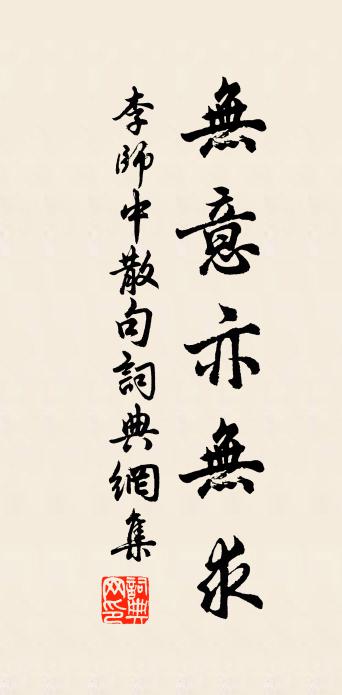 無意亦無求
李師中散句詞典網集
詞典網印